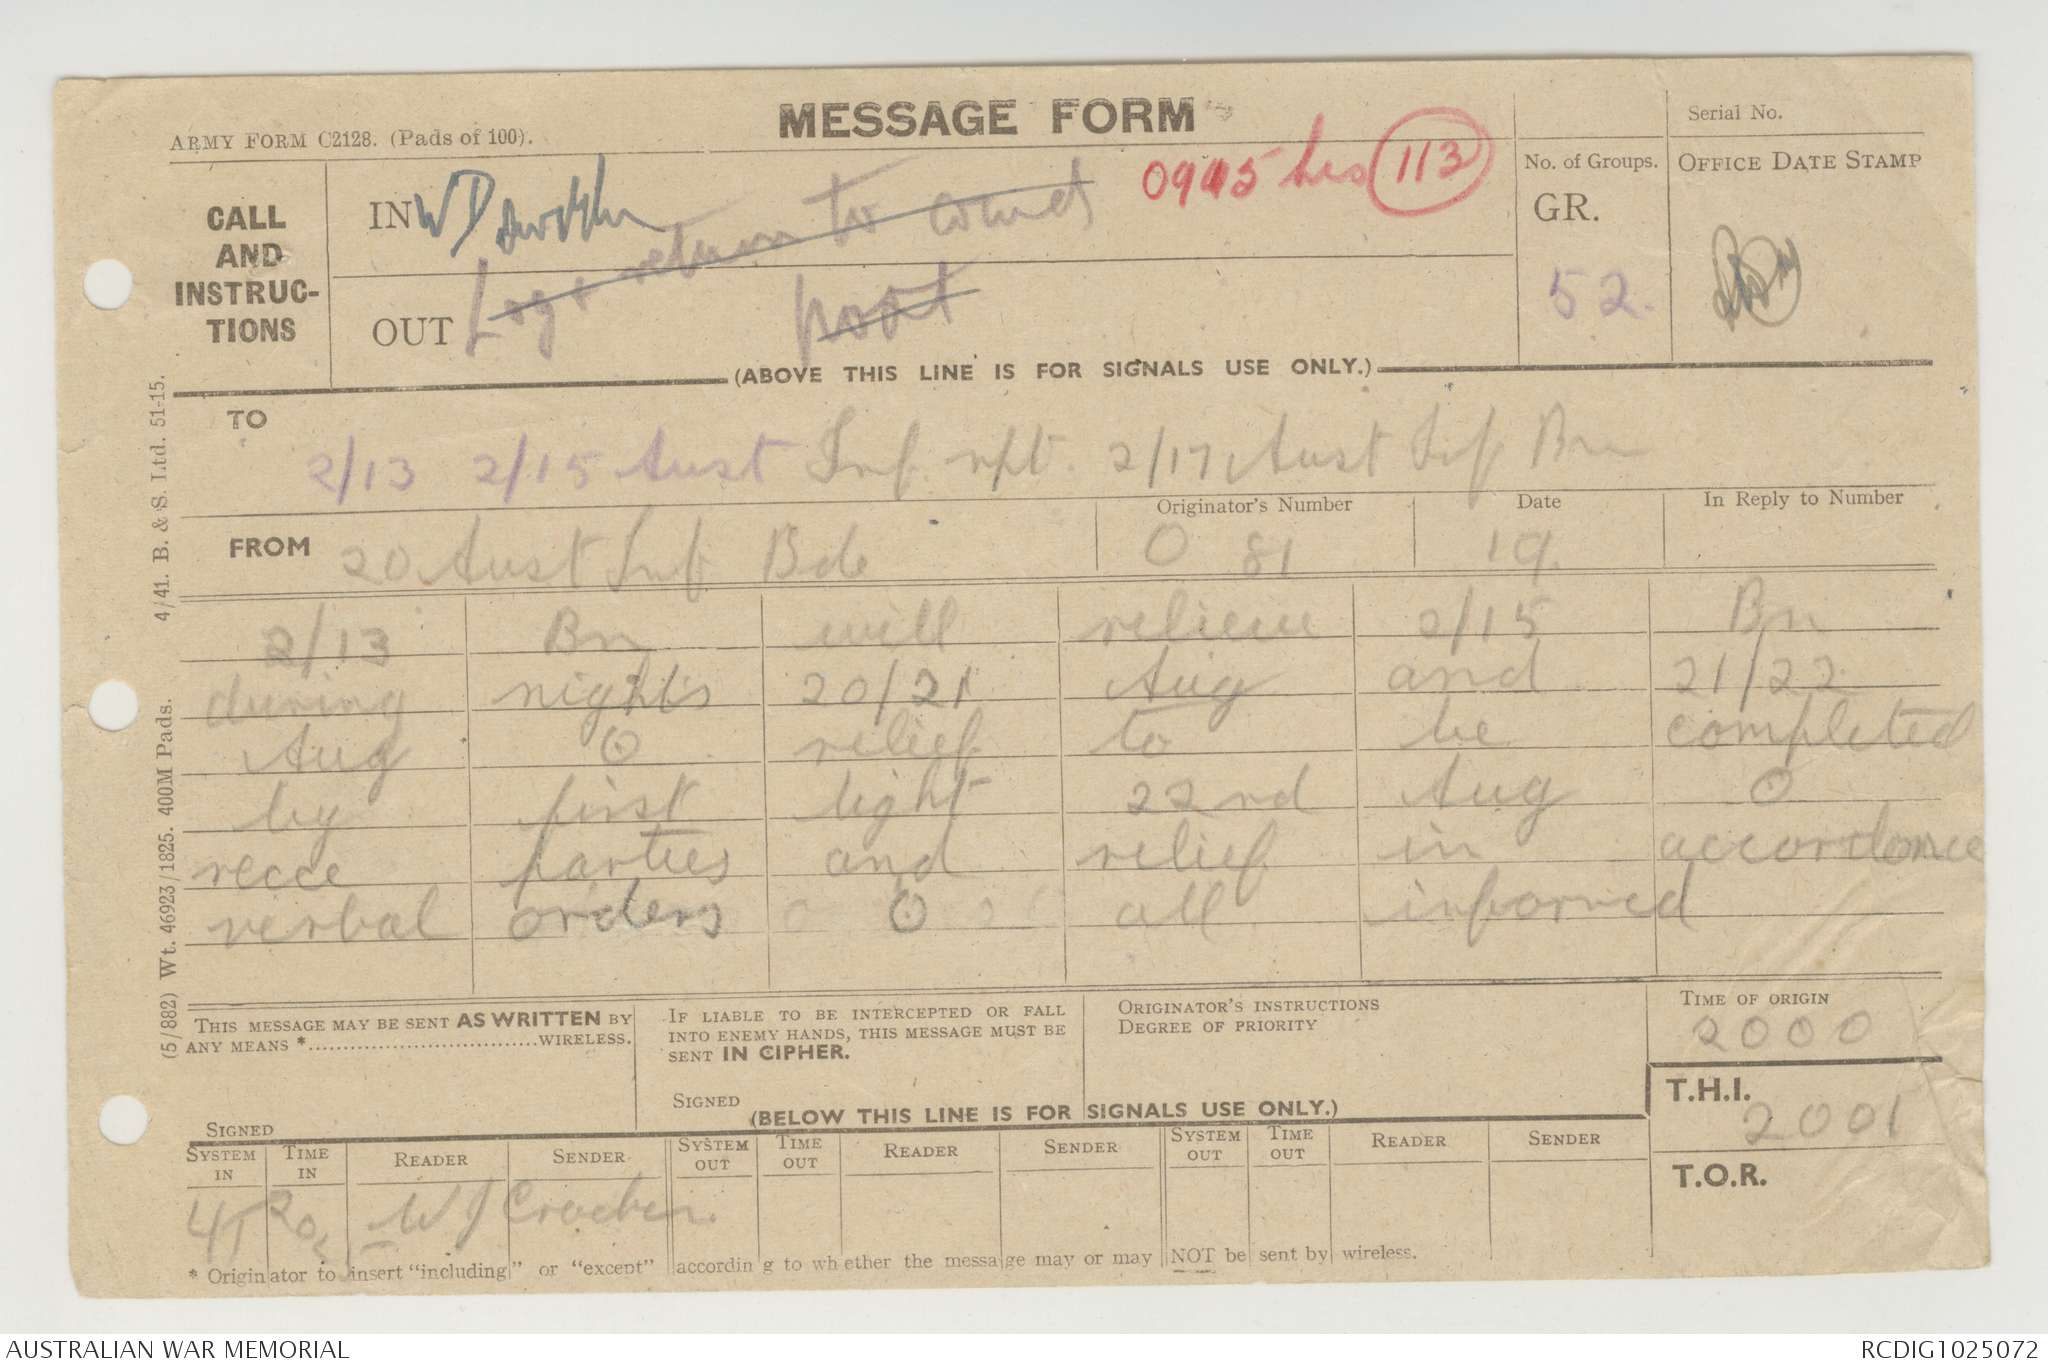 MESSAGE FORM
ARMY FORM C2128. (Pads of 100).
Serial No.
0945 hrs 113
No. of Groups.
OFFICE DATE STAMP
CALL AND INSTRUC-TIONS
IN
GR.
52.
OUT Log & return to comd
post
(ABOVE THIS LINE IS FOR SIGNALS USE ONLY.)
TO
2/13 2/15 Aust Inf. rpt. 2/17 Aust Inf Bn
Originator's Number
Date
In Reply to Number
FROM 20 Aust Inf Bde
O 81
19.
2/13 Bn will relieve 2/15 Bn
during nights 20/21 Aug and 21/22
Aug O relief to be completed
by first light 22nd Aug O
recce parties and relief in accordance
verbal orders O all informed
(5/882) Wt. 46923/1825. 400M Pads. 4/41. B. & S. Ltd. 51-15.
THIS MESSAGE MAY BE SENT AS WRITTEN BY
ANY MEANS *..................................WIRELESS.
SIGNED
IF LIABLE TO BE INTERCEPTED OR FALL
INTO ENEMY HANDS, THIS MESSAGE MUST BE
SENT IN CIPHER.
SIGNED
ORIGINATOR'S INSTRUCTIONS
DEGREE OF PRIORITY
TIME OF ORIGIN
2000
T.H.I.
2001
T.O.R.
(BELOW THIS LINE IS FOR SIGNALS USE ONLY.)
SYSTEM IN TIME IN READER SENDER SYSTEM OUT TIME OUT READER SENDER SYSTEM OUT TIME OUT READER SENDER
WJ
* Originator to insert "including" or "except" according to whether the message may or may NOT be sent by wireless.
AUSTRALIAN WAR MEMORIAL
RCDIG1025072